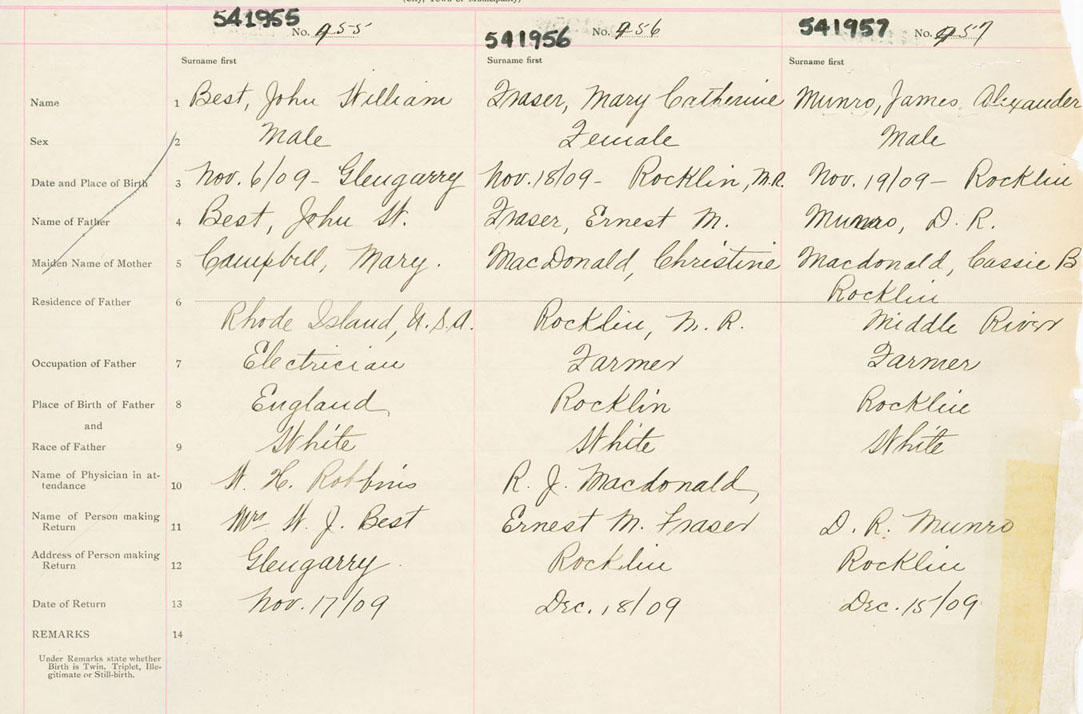 (City, Town or Municipality)
541955 No. 955 541956 No. 956 541957 No. 957
Surname first Surname first Surname first
Name 1 Best, John William Fraser, Mary Catherine Munro, James Alexander
Sex 2 Male Female Male
Date and Place of Birth 3 Nov. 6/09 - Glengarry Nov. 18/09 - Rocklin, M.R. Nov. 19/09 - Rocklin
Name of Father 4 Best, John W. Fraser, Ernest M. Munro, D. R.
Maiden Name of Mother 5 Campbell, Mary. MacDonald, Christine Macdonald, Cassie B
Rocklin
Residence of Father 6 Rhode Island, U.S.A. Rocklin, M. R. Middle River
Occupation of Father 7 Electrician Farmer Farmer
Place of Birth of Father 8 England, Rocklin Rocklin
and
Race of Father 9 White White White
Name of Physician in at-
tendance 10 W. H. Robbins R. J. Macdonald,
Name of Person making
Return 11 Mrs W. J. Best Ernest M. Fraser D. R. Munro
Address of Person making
Return 12 Glengarry. Rocklin Rocklin
Date of Return 13 Nov. 17/09 Dec. 18/09 Dec. 15/09
REMARKS 14
Under Remarks state whether
Birth is Twin, Triplet, Ille-
gitimate or Still-birth.